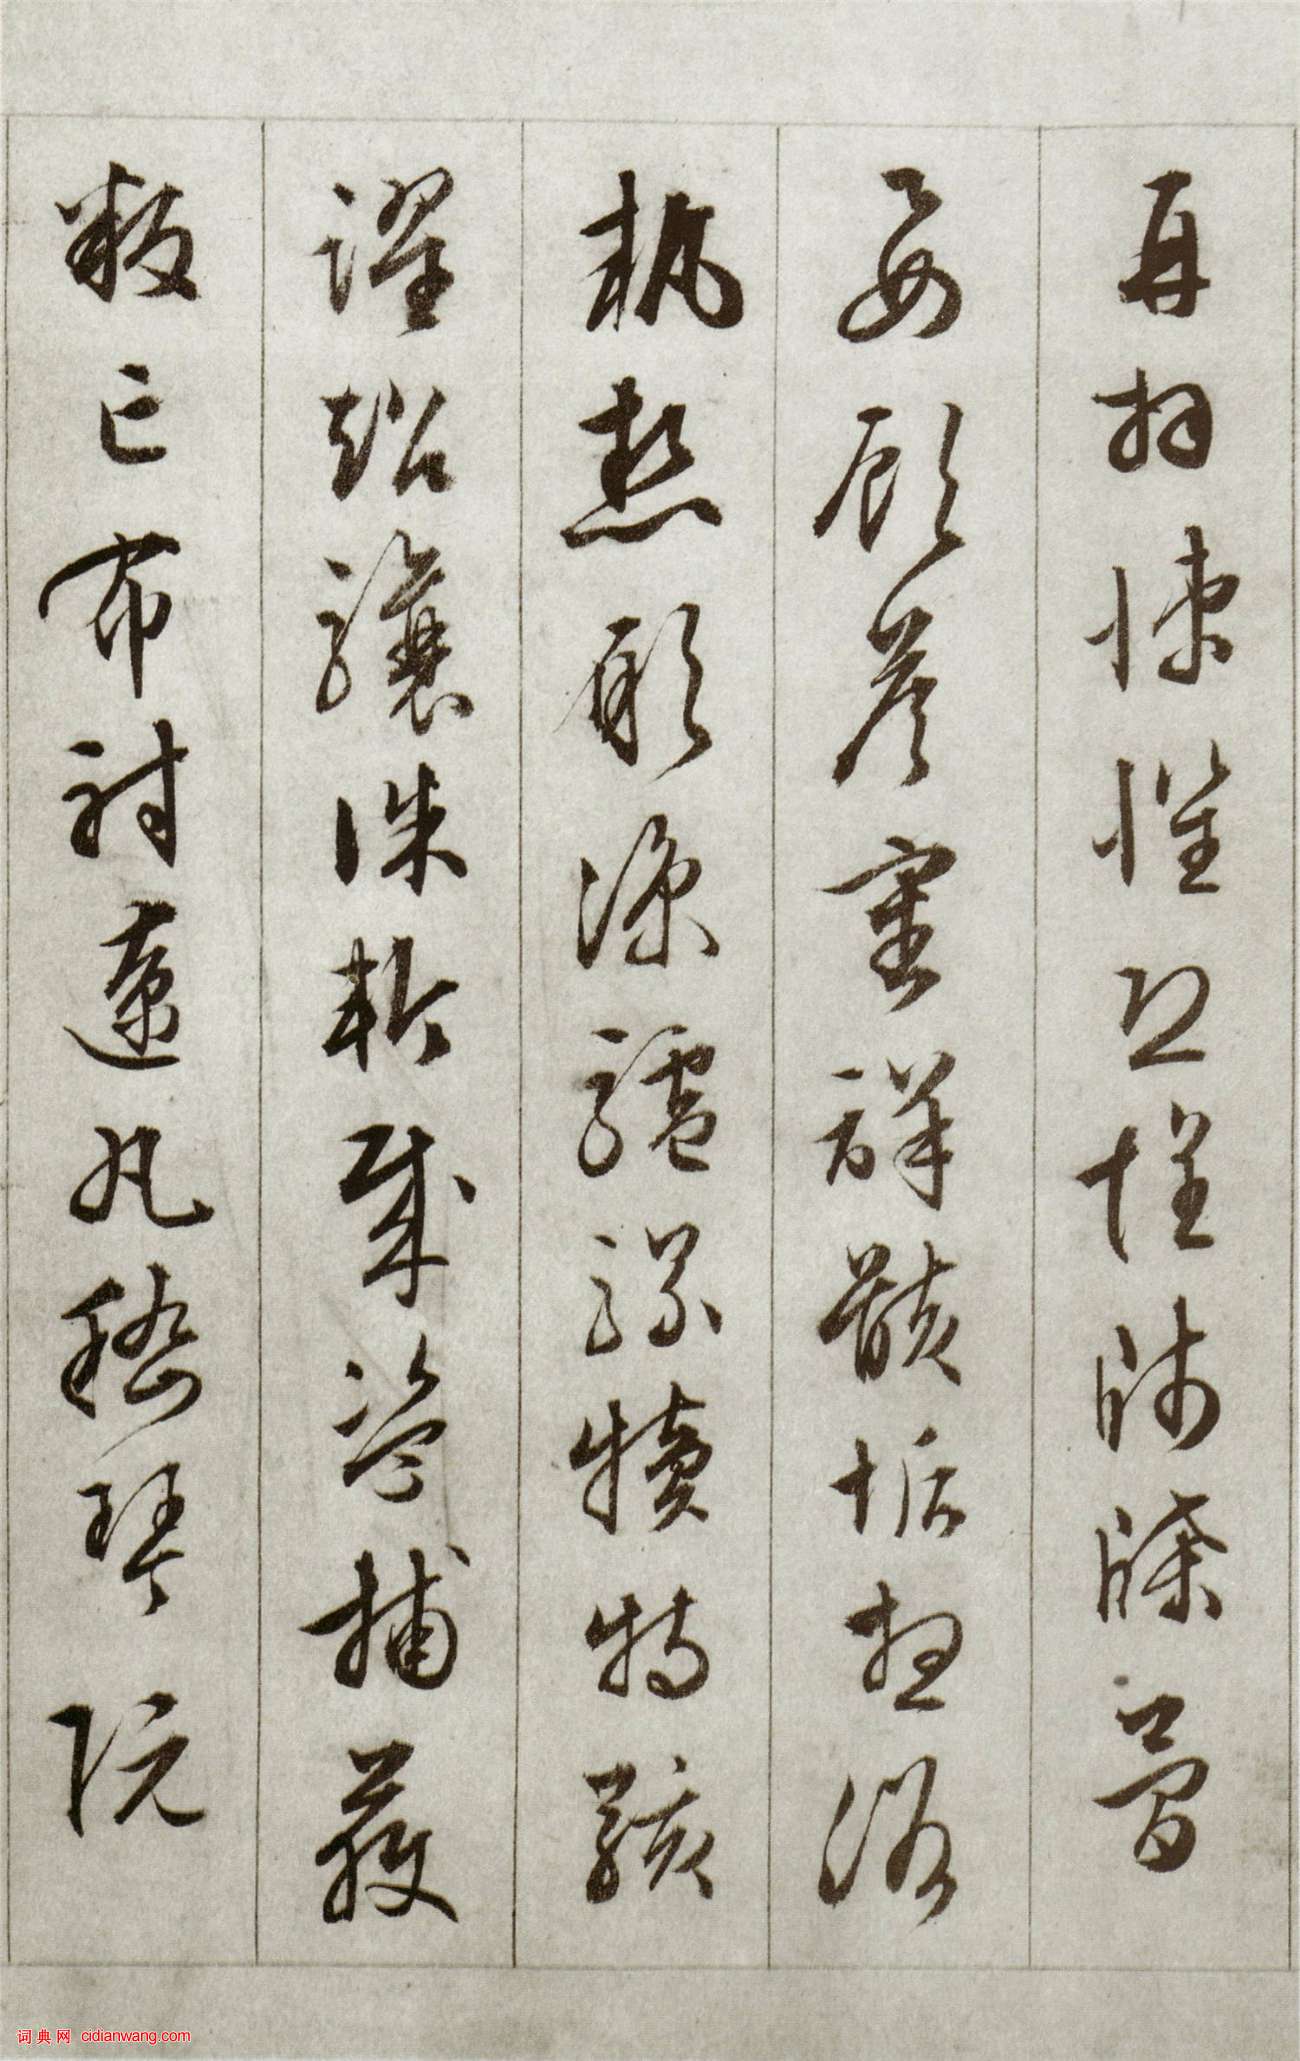 再拜悚懼恐惶牋牒簡
要顧答審詳骸垢想浴
執熱願涼驢騾犢特駭
躍超驤誅斬賊盜捕獲
叛亡布射遼丸嵇琴阮
词典网 cidianwang.com